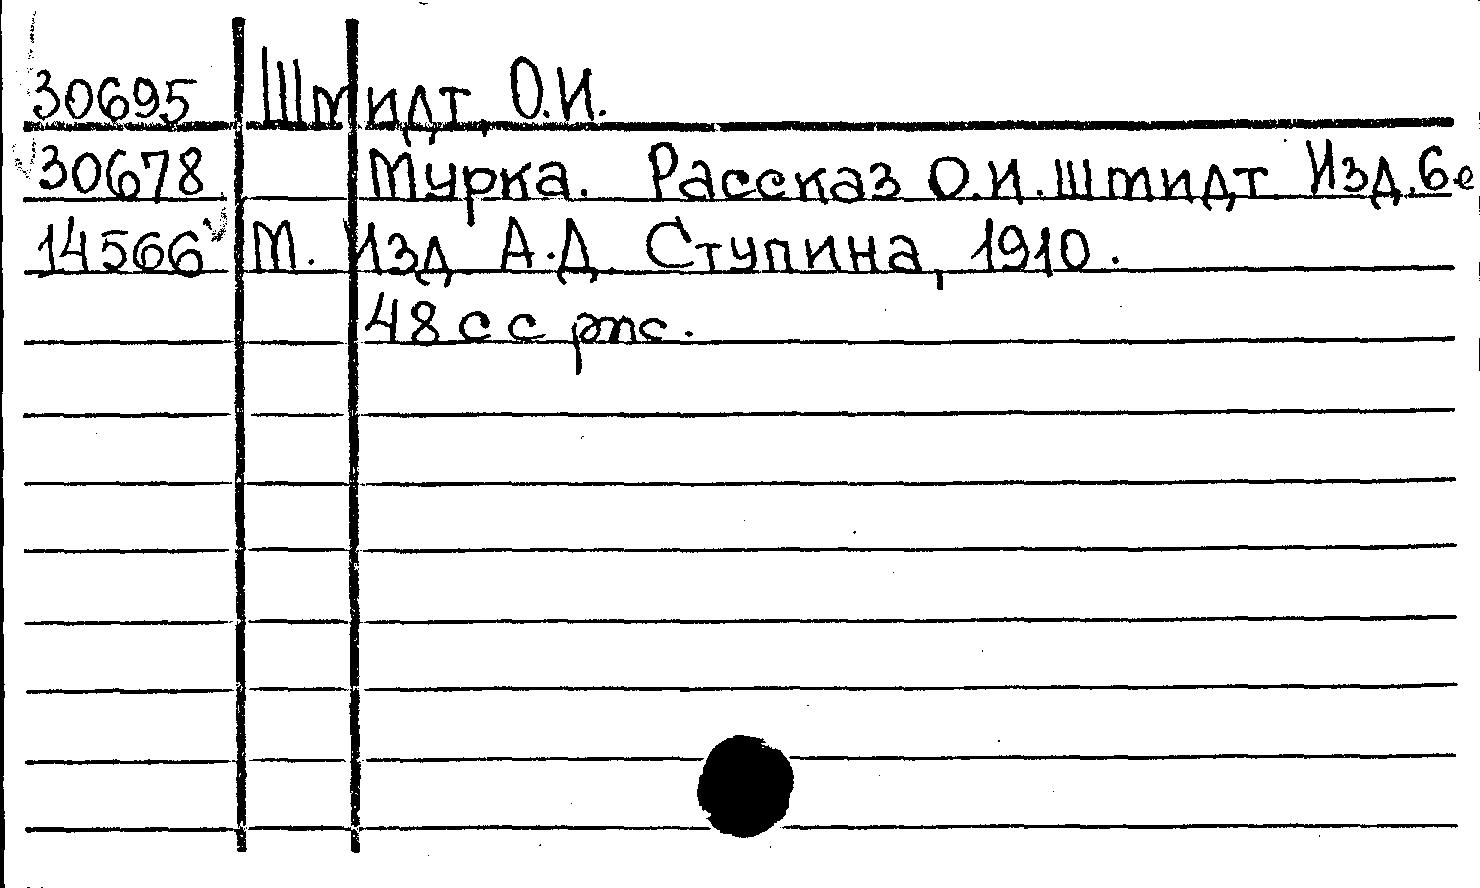 30695 Шмидт, О.И.
30678 Мурка. Рассказ О.И.Шмидт Изд.6е
14566 М. Изд А.Д. Ступина, 1910.
48 с с рис.